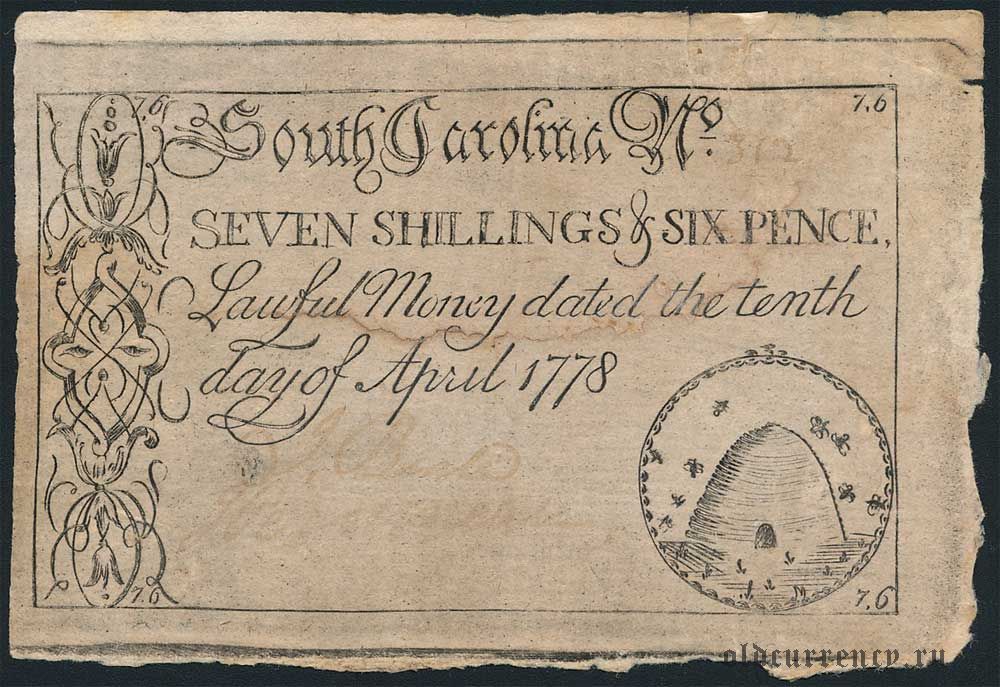 7.6 South Carolina Nº. 7.6
SEVEN SHILLINGS & SIX PENCE,
Lawful Money dated the tenth
day of April 1778
7.6 7.6
oldcurrency.ru